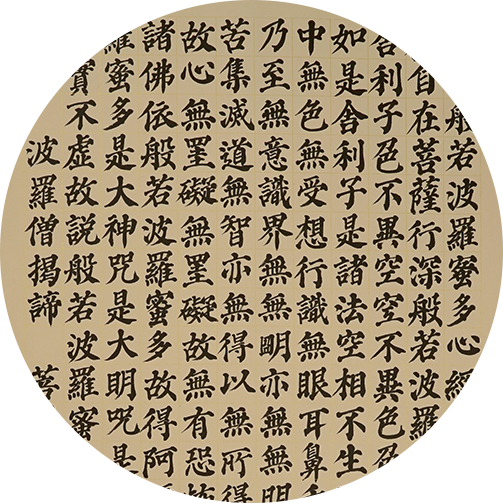 般若波羅蜜多心經
自在菩薩行深般若波羅
舍利子色不異空空不異色
如是舍利子是諸法空相不生
中無色無受想行識無眼耳鼻
乃至無意識界無無明亦無無明
苦集滅道無智亦無無得以無所得
故心無罣礙無罣礙故無有恐
諸佛依般若波羅蜜多故得阿
羅蜜多是大神咒是大明咒是
實不虛故說般若波羅蜜
波羅僧揭諦 菩